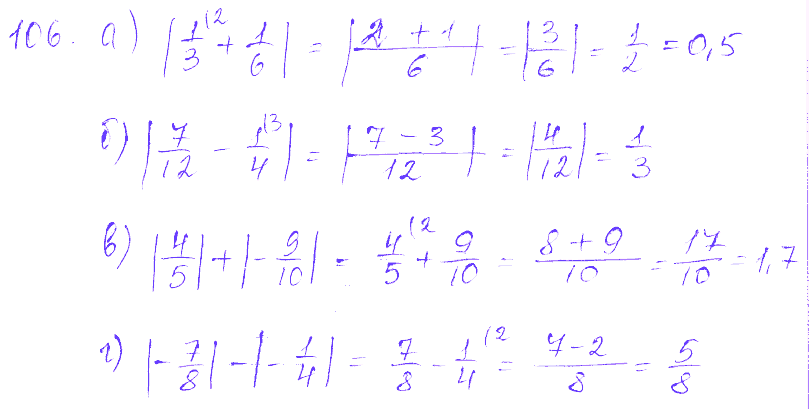 106. а) |1/3⁽² + 1/6| = |(2 + 1)/6| = |3/6| = 1/2 = 0,5
б) |7/12 - 1/4⁽³| = |(7 - 3)/12| = |4/12| = 1/3
в) |4/5| + |-9/10| = 4/5⁽² + 9/10 = (8 + 9)/10 = 17/10 = 1,7
г) |-7/8| - |-1/4| = 7/8 - 1/4⁽² = (7-2)/8 = 5/8